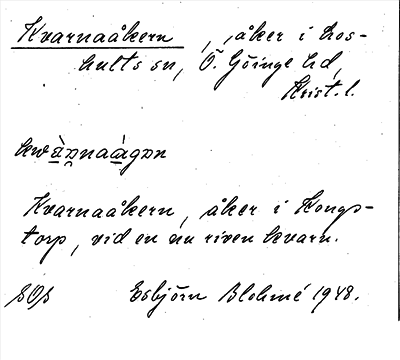 Kvarnaåkern, åker i Los-
hults sn, Ö. Göinge hd,
Krist. l.
kwànnaàgɒn
Kvarnaåkern, åker i Kongs-
torp, vid en nu riven kvarn.
Esbjörn Blohmé 1948.